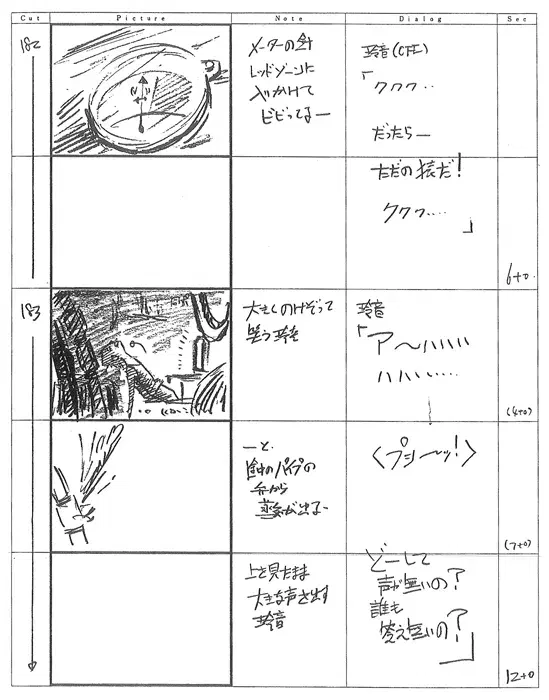 Cut Picture Note Dialog Sec
182
メーターの針
レッドゾーンに
入りかけて
ビビってるー
玲音(OFF)
「ククク‥
だったらー
ただの猿だ!
ククク‥‥
」
6+0
183
大きくのけぞって
笑う玲音
玲音
「ア〜ハハハハ
ハハハ‥‥
(4+0)
ーと、
背中のパイプの
弁から
蒸気が出るー
〈プシ〜ッ!〉
(7+0)
上を見たまま
大きな声を出す
玲音
どーして
声が無いの?
誰も
答え無いの?
」
12+0